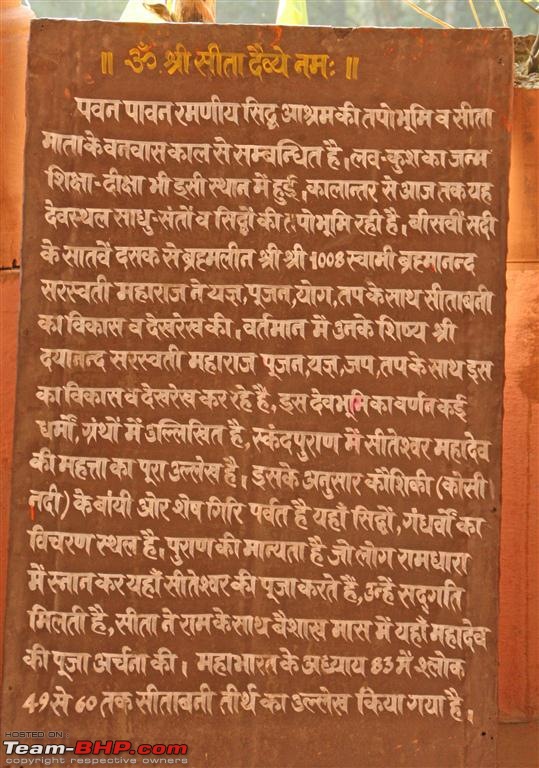 ॥ ॐ श्री सीता दैव्ये नमः ॥
पवन पावन रमणीय सिद्व आश्रम की तपोभूमि व सीता
माता के वनवास काल से सम्बन्धित है। लव-कुश का जन्म
शिक्षा-दीक्षा भी इसी स्थान में हुई, कालान्तर से आज तक यह
देवस्थल साधु-संतों व सिद्वों की तपोभूमि रही है। बीसवीं सदी
के सातवें दसक से ब्रह्मलीन श्री श्री 1008 स्वामी ब्रह्मानन्द
सरस्वती महाराज ने यज्ञ,पूजन,योग,तप के साथ सीताबनी
का विकास व देखरेख की। वर्तमान में उनके शिष्य श्री
दयानन्द सरस्वती महाराज पूजन,यज्ञ,जप,तप के साथ इस
का विकास व देखरेख कर रहे है, इस देवभूमि का वर्णन कई
धर्मों,ग्रथों में उल्लिखित है, स्कंदपुराण में सीतेश्वर महादेव
की महत्ता का पूरा उल्लेख है। इसके अनुसार कौशिकी (कोसी
नदी) के बांयी ओर शेष गिरि पर्वत है यहाँ सिद्वों, गंधर्वों का
विचरण स्थल है। पुराण की मान्यता है जो लोग रामधारा
में स्नान कर यहाँ सीतेश्वर की पूजा करते हैं, उन्हें सद्गति
मिलती है, सीता ने राम के साथ बैशाख मास में यहाँ महादेव
की पूजा अर्चना की। महाभारत के अध्याय 83 में श्लोक
49 से 60 तक सीताबनी तीर्थ का उल्लेख किया गया है।
HOSTED ON
Team-BHP.com
copyright respective owners